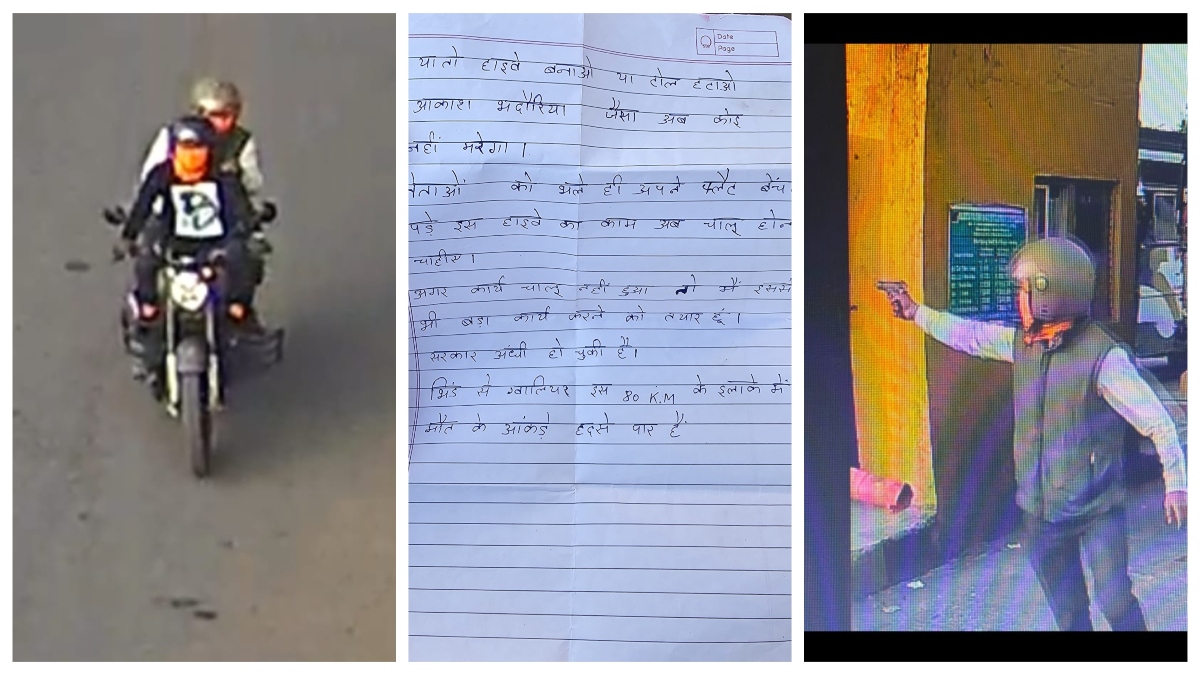 Date
Page
या तो हाइवे बनाओ या टोल हटाओ
आकाश भदौरिया जैसा अब कोइ
नहीं मरेगा ।
नेताओं को भले ही अपने फ्लैट बेंच
पड़े इस हाइवे का काम अब चालू होन
चाहीए ।
अगर कार्य चालू नहीं हुआ तो मैं इससे
भी बड़ा कार्य करने को तयार हूं ।
सरकार अंधी हो चुकी है ।
भिंड से ग्वालियर इस 80 K.M के इलाके में
मौत के आंकड़े हदसे पार हैं